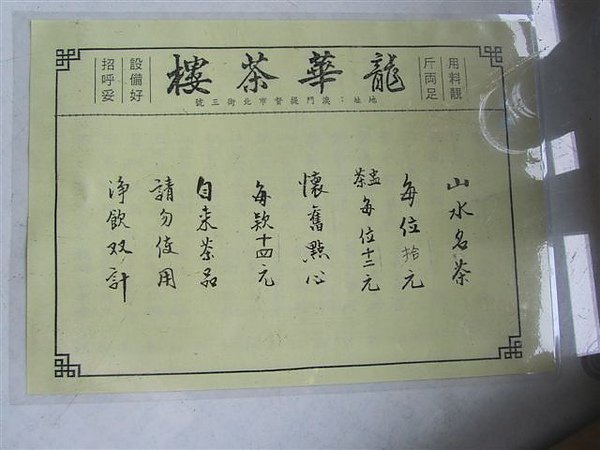 用料靚
斤両足
龍華茶樓
設備好
招呼妥
地址：澳門提督市北街三號
山水名茶
每位拾元
茶盅每位十二元
懷舊點心
每款十四元
自来茶品
請勿使用
淨飲双計